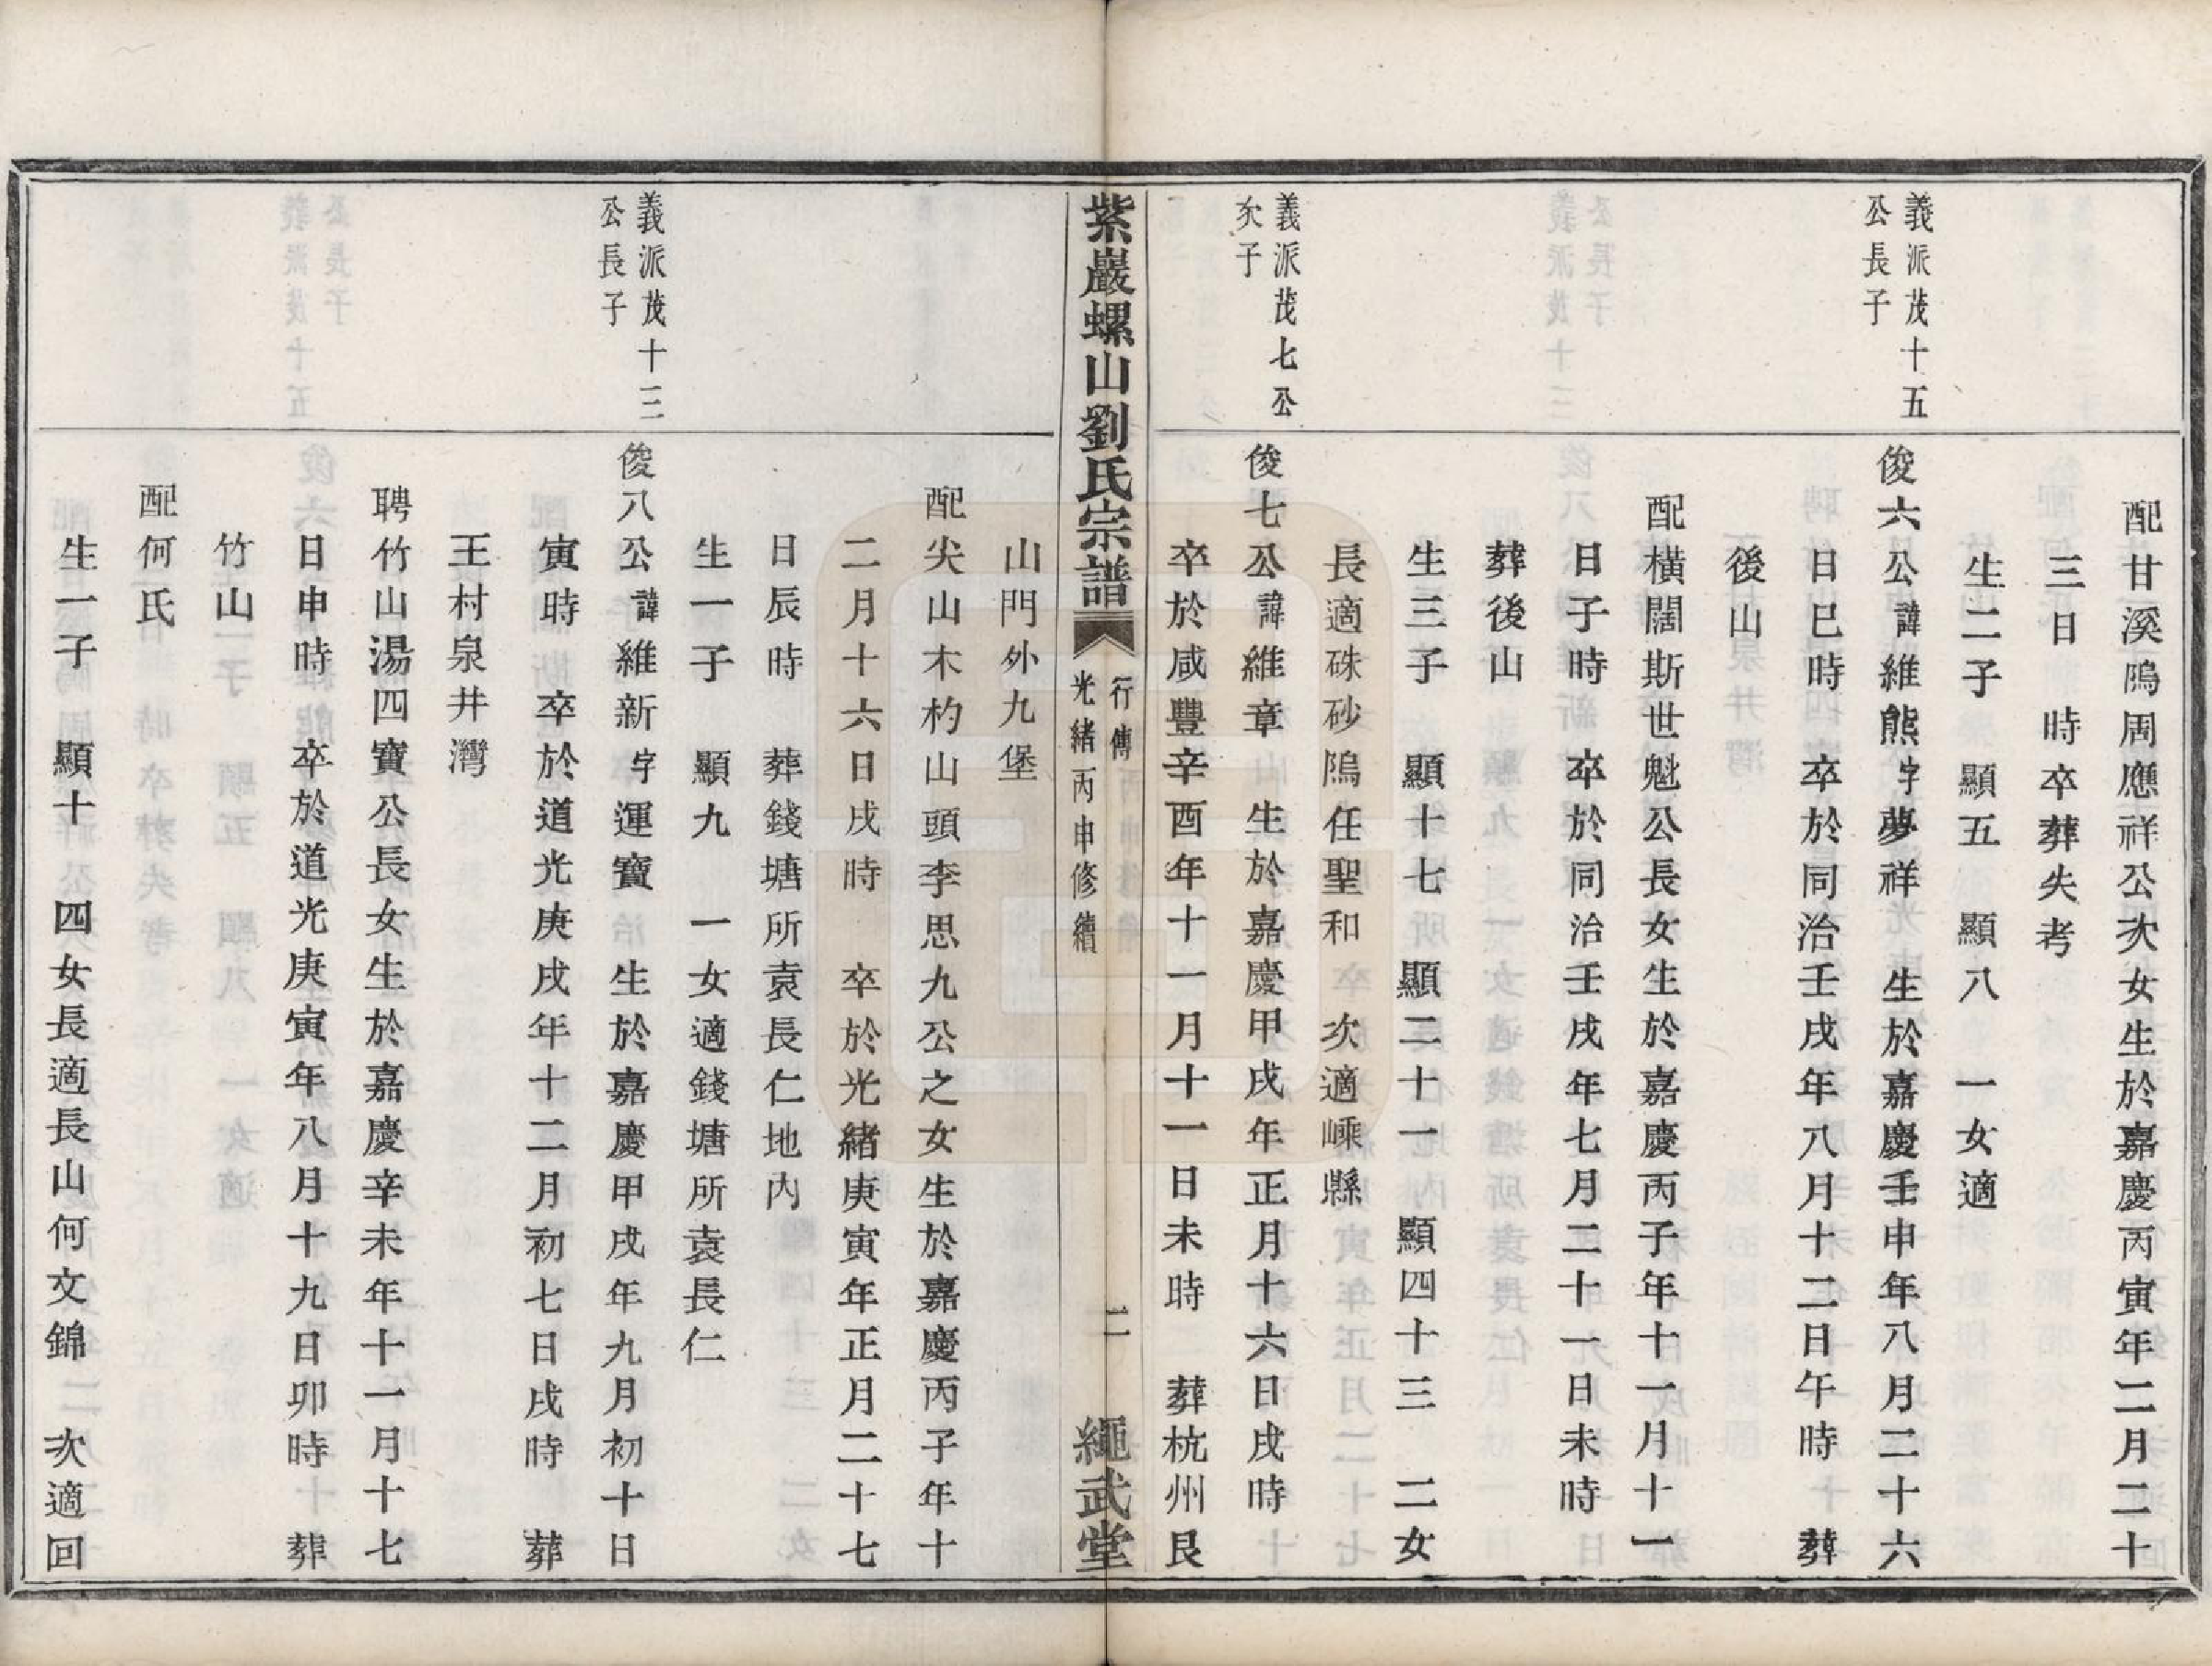 配甘溪鴎周應祥公次女生於嘉慶丙寅年二月二十
三日　時卒葬失考
生二子　顯五　顯八　一女適
義派茂十五
公長子
俊六公諱維熊字夢祥　生於嘉慶壬申年八月二十六
日巳時　卒於同治壬戌年八月十二日午時　葬
後山
配橫闊斯世魁公長女生於嘉慶丙子年十一月十一
日子時　卒於同治壬戌年七月二十一日未時
葬後山
生三子　顯十七　顯二十一　顯四十三　二女
長適硃砂隖任聖和　次適嵊縣
義派茂七公
次子
俊七公諱維章　生於嘉慶甲戌年正月十六日戌時
卒於咸豐辛酉年十一月十一日未時　葬杭州艮
紫巖螺山劉氏宗譜
行傳
光緒丙申修續
二
繩武堂
山門外九堡
配尖山木杓山頭李思九公之女生於嘉慶丙子年十
二月十六日戌時　卒於光緒庚寅年正月二十七
日辰時　葬錢塘所袁長仁地內
生一子　顯九　一女適錢塘所袁長仁
義派茂十三
公長子
俊八公諱維新字運寶　生於嘉慶甲戌年九月初十日
寅時　卒於道光庚戌年十二月初七日戌時　葬
王村泉井灣
聘竹山湯四寶公長女生於嘉慶辛未年十一月十七
日申時　卒於道光庚寅年八月十九日卯時　葬
竹山
配何氏
生一子　顯十　四女長適長山何文錦　次適回